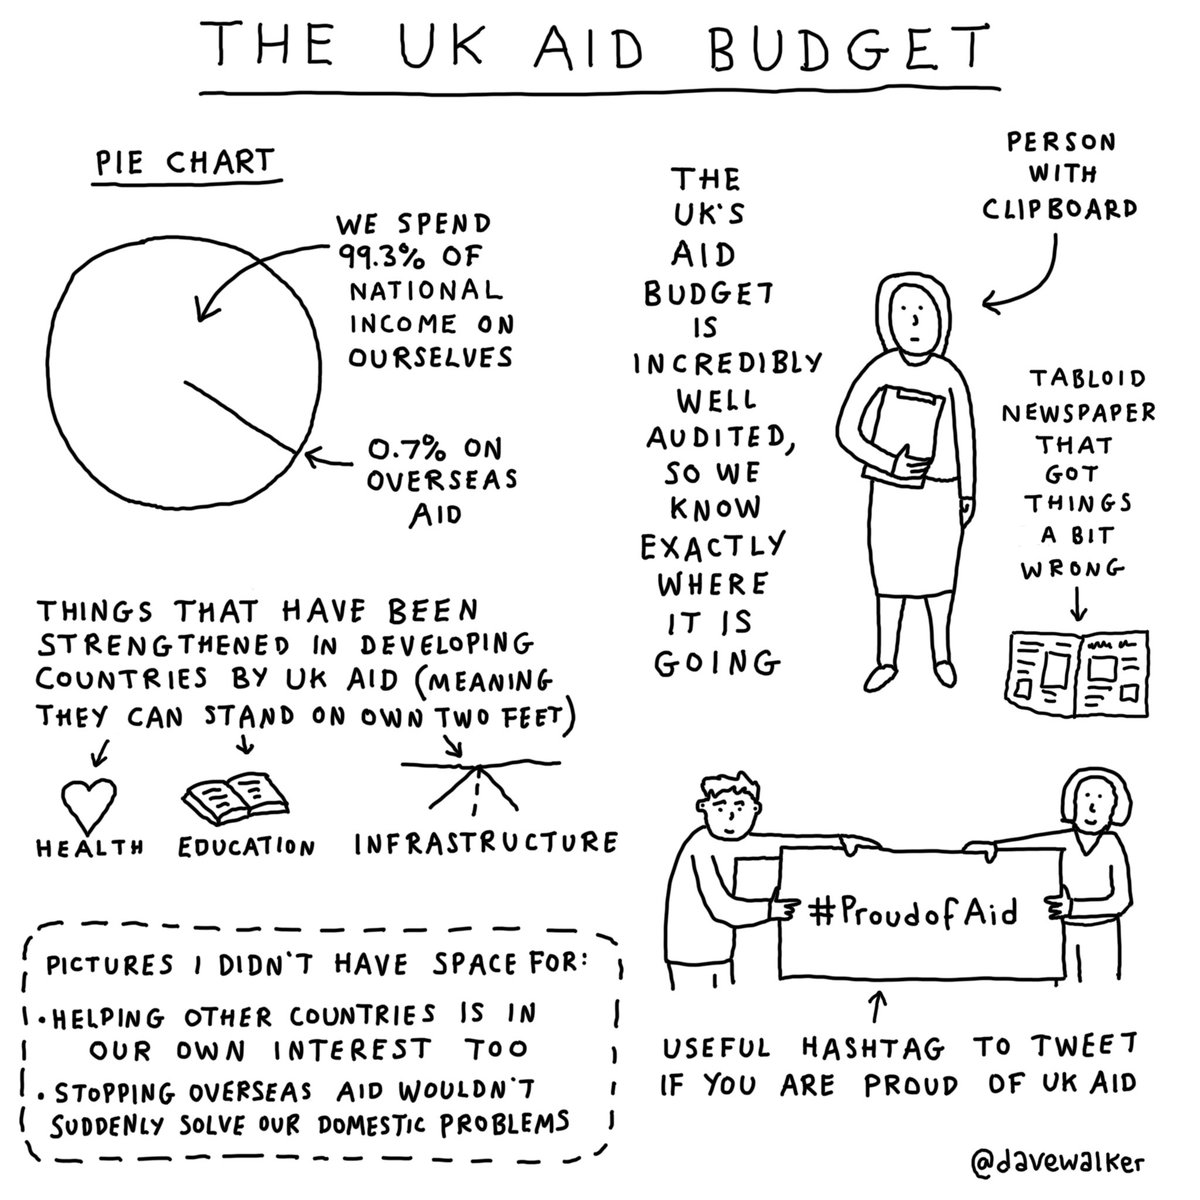 THE UK AID BUDGET
PIE CHART
WE SPEND
99.3% OF
NATIONAL
INCOME ON
OURSELVES
0.7% ON
OVERSEAS
AID
THE
UK'S
AID
BUDGET
IS
INCREDIBLY
WELL
AUDITED,
SO WE
KNOW
EXACTLY
WHERE
IT IS
GOING
PERSON
WITH
CLIPBOARD
TABLOID
NEWSPAPER
THAT
GOT
THINGS
A BIT
WRONG
THINGS THAT HAVE BEEN
STRENGTHENED IN DEVELOPING
COUNTRIES BY UK AID (MEANING
THEY CAN STAND ON OWN TWO FEET)
HEALTH
EDUCATION
INFRASTRUCTURE
PICTURES I DIDN'T HAVE SPACE FOR:
• HELPING OTHER COUNTRIES IS IN
OUR OWN INTEREST TOO
• STOPPING OVERSEAS AID WOULDN'T
SUDDENLY SOLVE OUR DOMESTIC PROBLEMS
#ProudofAid
USEFUL HASHTAG TO TWEET
IF YOU ARE PROUD OF UK AID
@davewalker